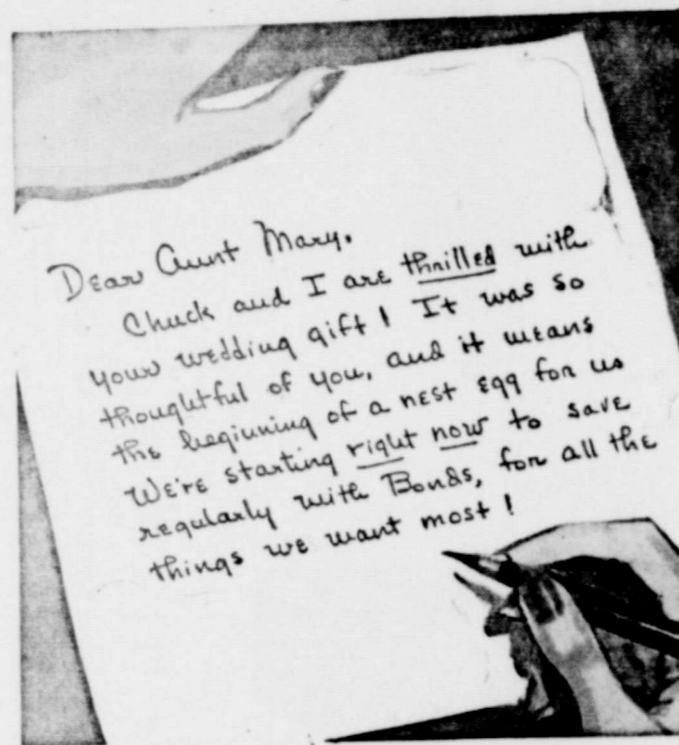 Dear Aunt Mary.
Chuck and I are thrilled with
your wedding gift! It was so
thoughtful of you, and it means
the beginning of a nest egg for us
We're starting right now to save
regularly with Bonds, for all the
things we want most!